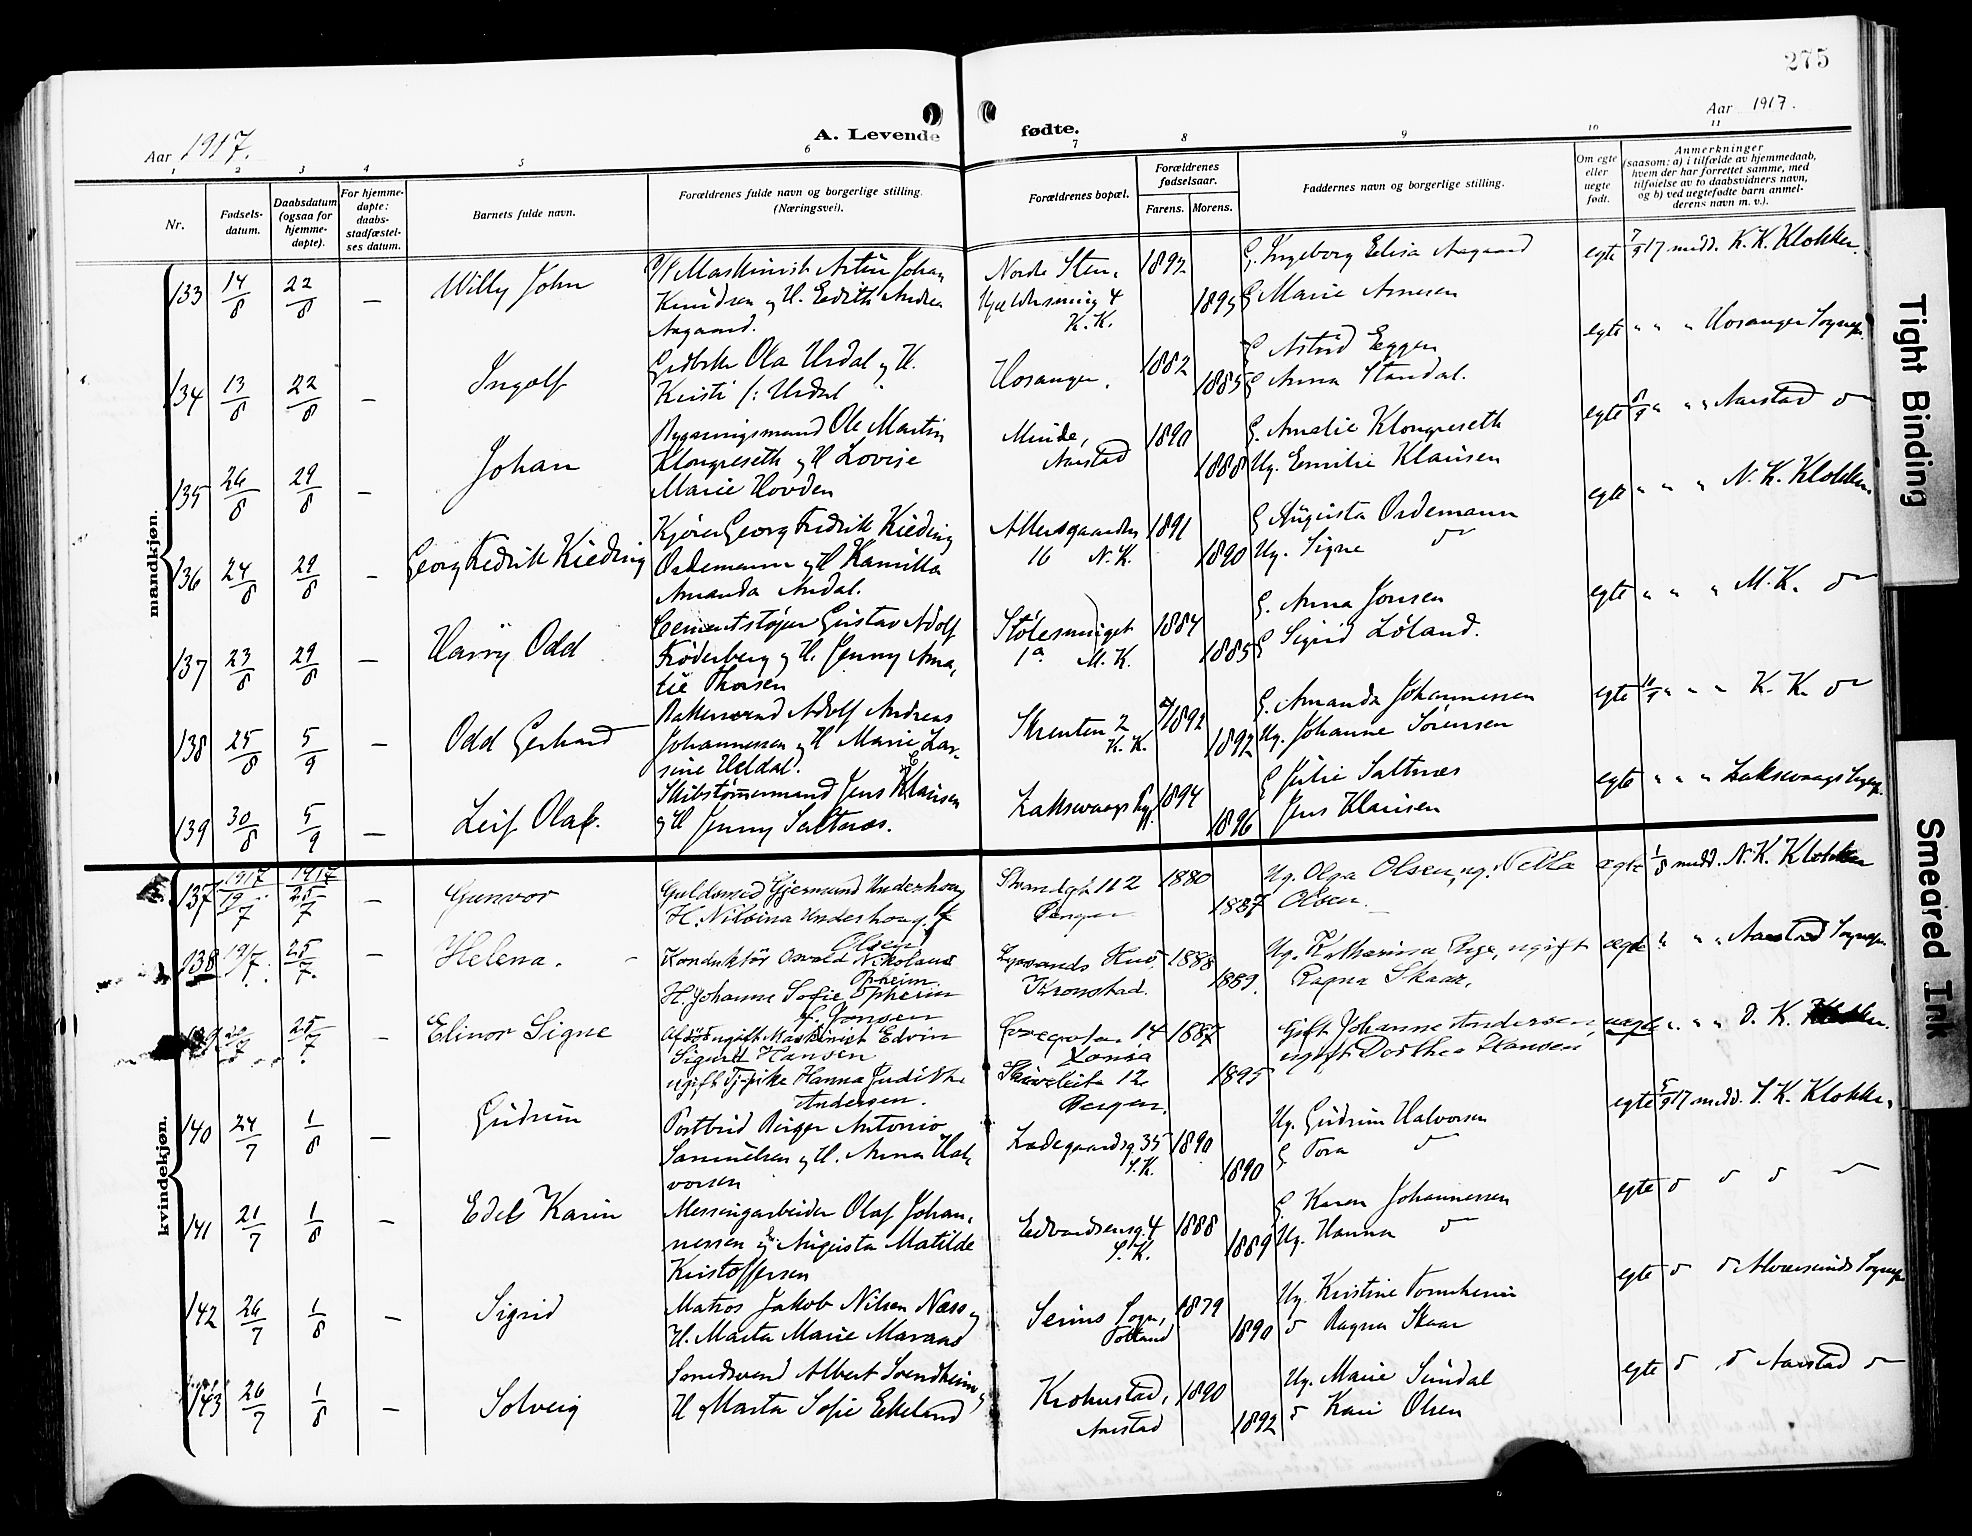 275
Aar 1917.
A. Levende fødte.
Aar 1917.
1 2 3 4 5 6 7 8 9 10 11
Nr.
Fødsels-
datum.
Daabsdatum
(ogsaa for
hjemme-
døpte).
For hjemme-
døpte:
daabs-
stadfæstel-
ses datum.
Barnets fulde navn.
Forældrenes fulde navn og borgerlige stilling.
(Næringsvei).
Forældrenes bopæl.
Forældrenes
fødselsaar.
Farens. Morens.
Faddernes navn og borgerlige stilling.
Om egte
eller
uegte
født.
Anmerkninger
(saasom: a) i tilfælde av hjemmedaab,
hvem der har forrettet samme, med
tilføielse av to daabsvidners navn,
og b) ved uegtefødte barn anmel-
derens navn m. v.).
mandkjøn.
133 14/8 22/8 — Willy John
Maskinist Johan
Knudsen og H. Edith Andrea
Aagaard.
4
K.K.
1892 1895
G. Ingeborg Elisa Aagaard
G Marie Arnesen
egte 7/9 17 medd. K. K. Klokker.
134 13/8 22/8 — Ingolf
Ola Urdal og H.
Kristi f: Urdal
Hosanger.
1882 1885
G Astrid Eggen
G Anna Standal.
egte " " " Hosanger Sognepr.
135 26/8 29/8 — Johan
Bygningsmand Ole Martin
Klongreseth og H Lovise
Marie Hovden
Minde,
Aarstad
1890 1888
G. Amalie Klongreseth
Ug. Emilie Klausen
egte 8/9 " " Aarstad do
136 24/8 29/8 — Georg Fredrik Kieding
Kjører Georg Fredrik Kieding
Ordemann og H Kamilla
Amanda Andal.
16 N.K.
1891 1890
G Augusta Ordemann
Ug. Signe do
egte " " " N. K. Klokker
137 23/8 29/8 — Harry Odd
Cementstøper Gustav Adolf
Frøderberg og H. Jenny Ama-
lie Thorsen
Stølesmuget
1a M.K.
1884 1885
G. Anna Jonsen
G Sigrid Løland.
egte " " " M. K. do
138 25/8 5/9 — Odd Gerhard
Bakersvend Adolf Andreas
Johannessen og H Marie Lar-
sine Heldal.
Skrenten 2
K.K.
1892 1892
G. Amanda Johannessen
Ug. Johanne Sørensen
egte 10/9 " " K. K. do
139 30/8 5/9 — Leif Olaf.
Skibstømmermand Jens Klausen
og H Jenny Saltnæs.
Laksevaags
1894 1896
G Julie Saltnæs
Jens Klausen
egte " " " Laksevaags Sognepr.
kvindekjøn.
137 1917 19/7 1917 25/7 — Gunvor
Guldsmed Gjermund Underhaug
H. Nilsina Underhaug. f.
Olsen
Strandgt. 112
Bergen
1880 1887
Ug. Olga Olsen, ug. Netta
Olsen.
egte 1/8 medd. N. K. Klokker
138 19/7. 25/7. — Helena.
Konduktør Osvald Nikolaus
Opheim
H. Johanne Sofie Opheim
f. Jonsen
Kronstad.
1888 1889.
Ug. Katharina ugift
Ragna Skaar,
egte " " " Aarstad Sognepr.
25/7. — Elinor Signe
Maskinist Edvin
Sigurd Hansen
ugift Tj-pike Hanna Judithe
Andersen.
14
12
Bergen.
1887 1895
gift Johanne Andersen,
ugift Dorthea Hansen
uegte " " " D. K. Klokker.
140 24/7 1/8 — Gudrun
Postbud Birger Antonio
Samuelsen og H. Anna Hal-
vorsen
Ladegaardsg. 35
S.K.
1890 1890
Ug. Gudrun Halvorsen
G Tora do
egte 5/9 17 medd. S. K. Klokker.
141 21/7 1/8 — Edel Karin
Messingarbeider Olaf Johan-
nessen og H. Augusta Matilde
Kristoffersen
Edvardsensg. 4
S.K.
1888 1889
G Karen Johannessen
Ug. Hanna do
egte do do do
142 26/7 1/8 — Sigrid
Matros Jakob Nilsen Næss og
H. Marta Marie
Sogn,
1879 1890
Ug. Kristine Tornheim
do Ragna Skaar
egte do do Alversunds Sognepr.
143 26/7 1/8 — Solveig
Smedsvend Albert Svendheim og
H Marta Sofie Ekeland
Krohnstad,
Aarstad
1890 1892
Ug. Marie Sundal
do Kari Olsen
egte do do Aarstad do
Tight Binding
Smeared Ink